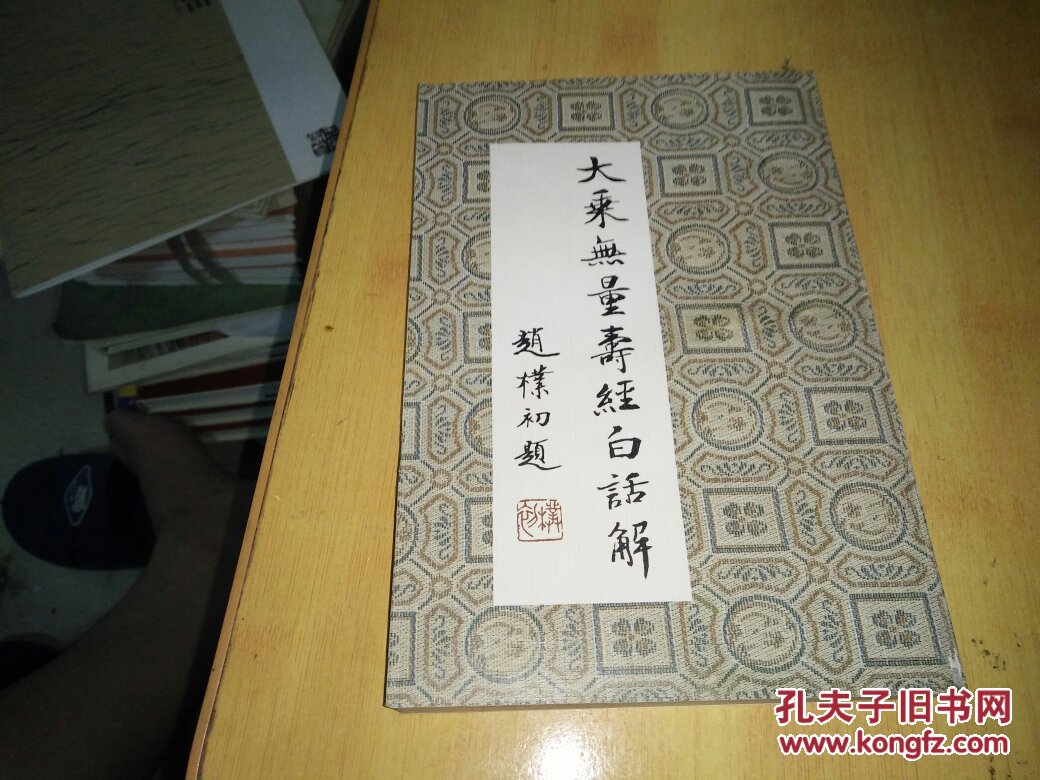 大乘無量壽經白話解
趙樸初題
樸初
孔夫子旧书网
www.kongfz.com